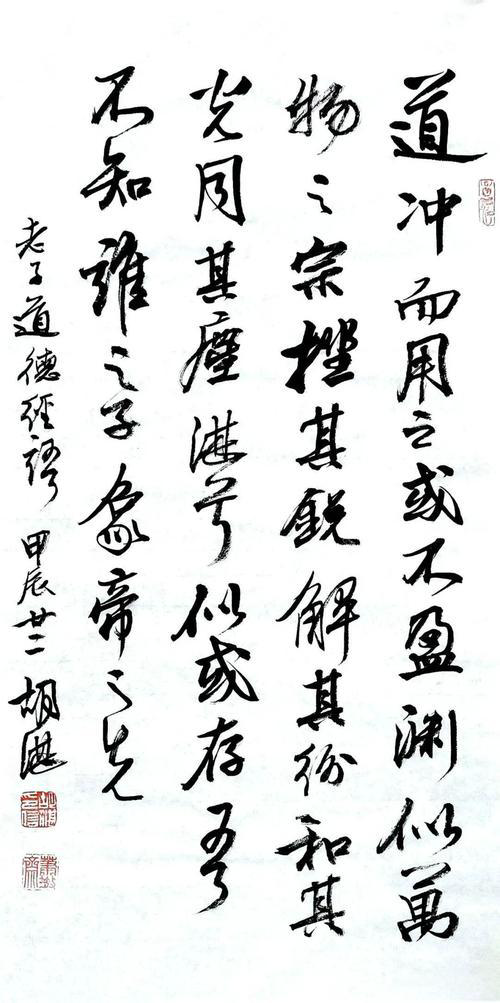 道冲而用之或不盈渊似萬
物之宗挫其鋭解其纷和其
光同其塵湛兮似或存吾
不知誰之子象帝之先
老子道德經語 甲辰廿二 胡湛